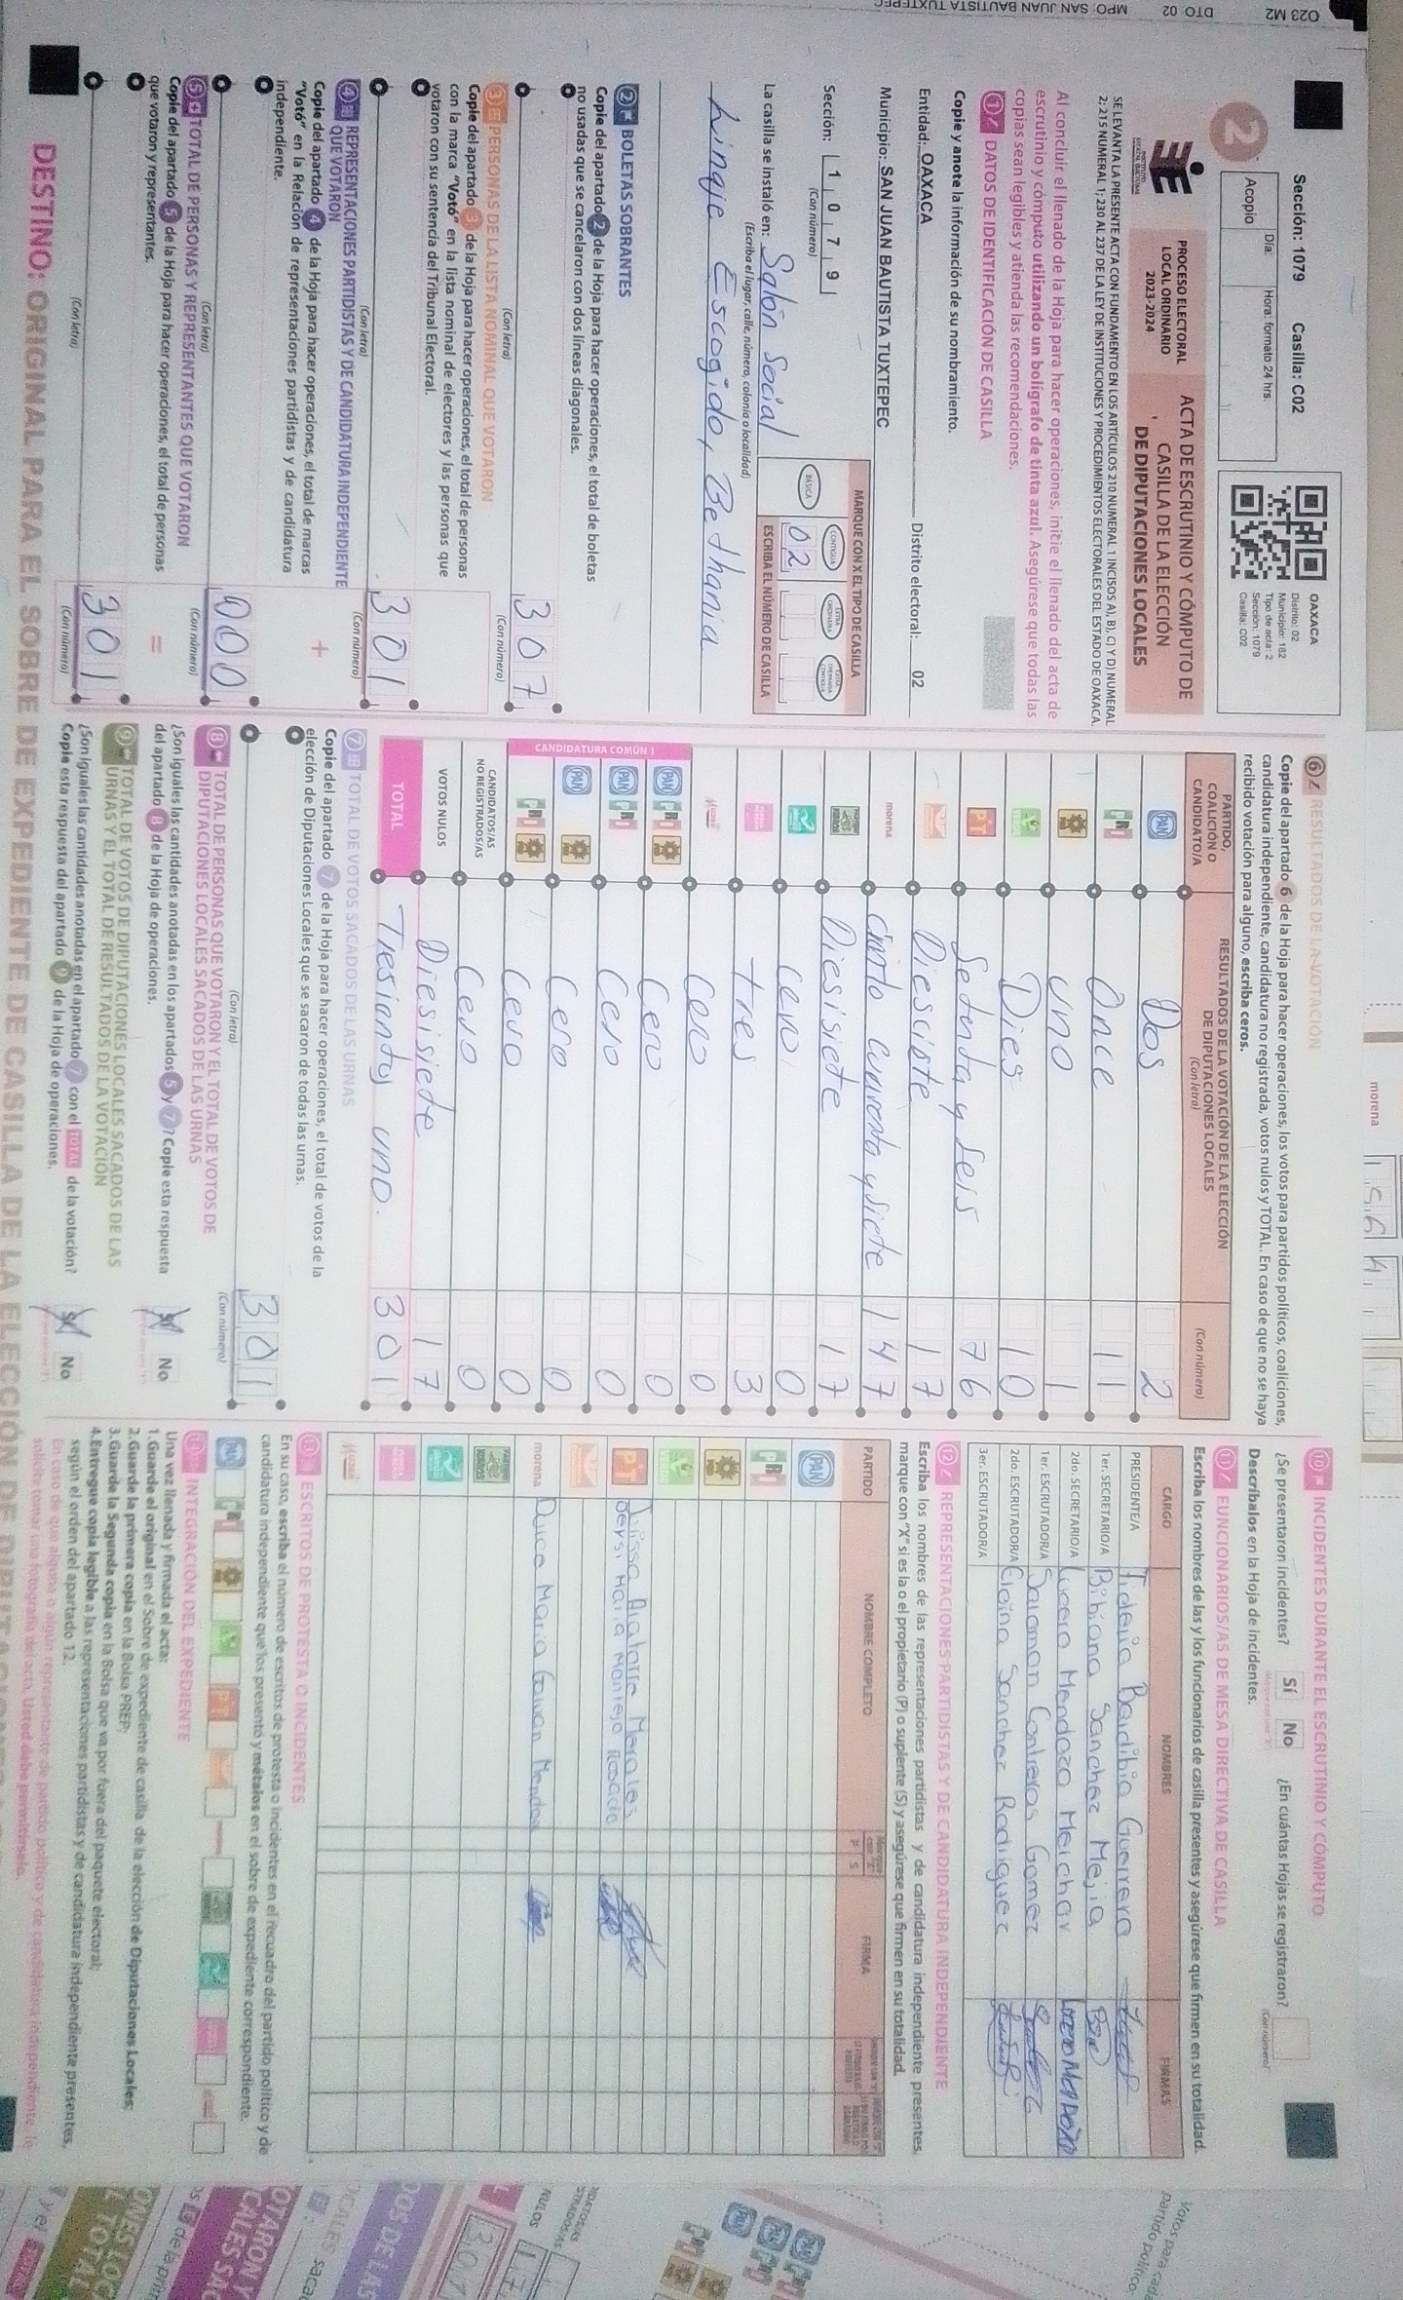 Sección: 1079 Casilla: C02
2
Acopio
Día:
Hora: formato 24 hrs.
OAXACA
Distrito: 02
Municipio: 182
Tipo de acta: 2
Sección: 1079
Casilla: C02
PROCESO ELECTORAL
LOCAL ORDINARIO
2023-2024
ACTA DE ESCRUTINIO Y CÓMPUTO DE
CASILLA DE LA ELECCIÓN
DE DIPUTACIONES LOCALES
SE LEVANTA LA PRESENTE ACTA CON FUNDAMENTO EN LOS ARTÍCULOS 210 NUMERAL 1 INCISOS A), B), C) Y D) NUMERAL
2; 215 NUMERAL 1; 230 AL 237 DE LA LEY DE INSTITUCIONES Y PROCEDIMIENTOS ELECTORALES DEL ESTADO DE OAXACA.
Al concluir el llenado de la Hoja para hacer operaciones, inicie el llenado del acta de
escrutinio y cómputo utilizando un bolígrafo de tinta azul. Asegúrese que todas las
copias sean legibles y atienda las recomendaciones.
1 DATOS DE IDENTIFICACIÓN DE CASILLA
Copie y anote la información de su nombramiento.
Entidad: OAXACA Distrito electoral: 02
Municipio: SAN JUAN BAUTISTA TUXTEPEC
Sección: 1 0 7 9
(Con número)
MARQUE CON X EL TIPO DE CASILLA
BÁSICA
CONTIGUA
02
ESCRIBA EL NÚMERO DE CASILLA
La casilla se instaló en: Salón Social
(Escriba el lugar, calle, número, colonia o localidad)
Linaje Escogido, Bethania
2 BOLETAS SOBRANTES
Copie del apartado 2 de la Hoja para hacer operaciones, el total de boletas
no usadas que se cancelaron con dos líneas diagonales.
307
(Con letra) (Con número)
3 PERSONAS DE LA LISTA NOMINAL QUE VOTARON
Copie del apartado 3 de la Hoja para hacer operaciones, el total de personas
con la marca "Votó" en la lista nominal de electores y las personas que
votaron con su sentencia del Tribunal Electoral.
301
(Con letra) (Con número)
4 REPRESENTACIONES PARTIDISTAS Y DE CANDIDATURA INDEPENDIENTE
QUE VOTARON
Copie del apartado 4 de la Hoja para hacer operaciones, el total de marcas
"Votó" en la Relación de representaciones partidistas y de candidatura
independiente.
+
000
(Con letra) (Con número)
5 TOTAL DE PERSONAS Y REPRESENTANTES QUE VOTARON
Copie del apartado 5 de la Hoja para hacer operaciones, el total de personas
que votaron y representantes.
=
301
(Con letra) (Con número)
6 RESULTADOS DE LA VOTACIÓN
Copie del apartado 6 de la Hoja para hacer operaciones, los votos para partidos políticos, coaliciones,
candidatura independiente, candidatura no registrada, votos nulos y TOTAL. En caso de que no se haya
recibido votación para alguno, escriba ceros.
PARTIDO,
COALICIÓN O
CANDIDATO/A
RESULTADOS DE LA VOTACIÓN DE LA ELECCIÓN
DE DIPUTACIONES LOCALES
(Con letra) (Con número)
PAN Dos 2
PRI Once 11
PRD uno 1
Dies 10
PT Setenta y seis 76
Diesciete 17
morena Ciento Cuarenta y siete 147
Diesisiete 17
Cero 0
tres 3
Cero 0
CANDIDATURA COMÚN 1
PAN PRI PRD Cero 0
PAN PRI Cero 0
PAN PRD Cero 0
PRI PRD Cero 0
CANDIDATOS/AS
NO REGISTRADOS/AS Cero 0
VOTOS NULOS Diesisiete 17
TOTAL Tresientos uno. 301
7 TOTAL DE VOTOS SACADOS DE LAS URNAS
Copie del apartado 7 de la Hoja para hacer operaciones, el total de votos de la
elección de Diputaciones Locales que se sacaron de todas las urnas.
301
(Con letra) (Con número)
8 TOTAL DE PERSONAS QUE VOTARON Y EL TOTAL DE VOTOS DE
DIPUTACIONES LOCALES SACADOS DE LAS URNAS
¿Son iguales las cantidades anotadas en los apartados 5 y 7? Copie esta respuesta
del apartado 8 de la Hoja de operaciones.
Sí No
9 TOTAL DE VOTOS DE DIPUTACIONES LOCALES SACADOS DE LAS
URNAS Y EL TOTAL DE RESULTADOS DE LA VOTACIÓN
¿Son iguales las cantidades anotadas en el apartado 7 con el TOTAL de la votación?
Copie esta respuesta del apartado 9 de la Hoja de operaciones.
Sí No
10 INCIDENTES DURANTE EL ESCRUTINIO Y CÓMPUTO
¿Se presentaron incidentes? Sí No ¿En cuántas Hojas se registraron?
(Con número)
Descríbalos en la Hoja de incidentes.
11 FUNCIONARIOS/AS DE MESA DIRECTIVA DE CASILLA
Escriba los nombres de las y los funcionarios de casilla presentes y asegúrese que firmen en su totalidad.
CARGO NOMBRES FIRMAS
PRESIDENTE/A Fidelia Baldibia Guerrero
1er. SECRETARIO/A Bibiana Sanchez Mejia
2do. SECRETARIO/A Lucero Mendoza Melchor
1er. ESCRUTADOR/A Salomon Contreras Gomez
2do. ESCRUTADOR/A Eloina Sanchez Rodriguez
3er. ESCRUTADOR/A
12 REPRESENTACIONES PARTIDISTAS Y DE CANDIDATURA INDEPENDIENTE
Escriba los nombres de las representaciones partidistas y de candidatura independiente presentes,
marque con "X" si es la o el propietario (P) o suplente (S) y asegúrese que firmen en su totalidad.
PARTIDO NOMBRE COMPLETO P S FIRMA
PAN
PRI
PRD
PT Alatorre Morales
Maria Montejo Rosado
morena Dulce Maria Guzman Mendoz
13 ESCRITOS DE PROTESTA O INCIDENTES
En su caso, escriba el número de escritos de protesta o incidentes en el recuadro del partido político y de
candidatura independiente que los presentó y métalos en el sobre de expediente correspondiente.
14 INTEGRACIÓN DEL EXPEDIENTE
Una vez llenada y firmada el acta:
1. Guarde el original en el Sobre de expediente de casilla de la elección de Diputaciones Locales;
2. Guarde la primera copia en la Bolsa PREP;
3. Guarde la Segunda copia en la Bolsa que va por fuera del paquete electoral;
4. Entregue copia legible a las representaciones partidistas y de candidatura independiente presentes,
según el orden del apartado 12.
En caso de que alguna o algún representante de partido político y de candidatura independiente, le
solicite tomar una fotografía del acta, Usted debe permitírselo.
DESTINO: ORIGINAL PARA EL SOBRE DE EXPEDIENTE DE CASILLA DE LA ELECCIÓN DE DIPUTACIONES
O23 M2 DTO 02 MPO SAN JUAN BAUTISTA TUXTEPEC
morena